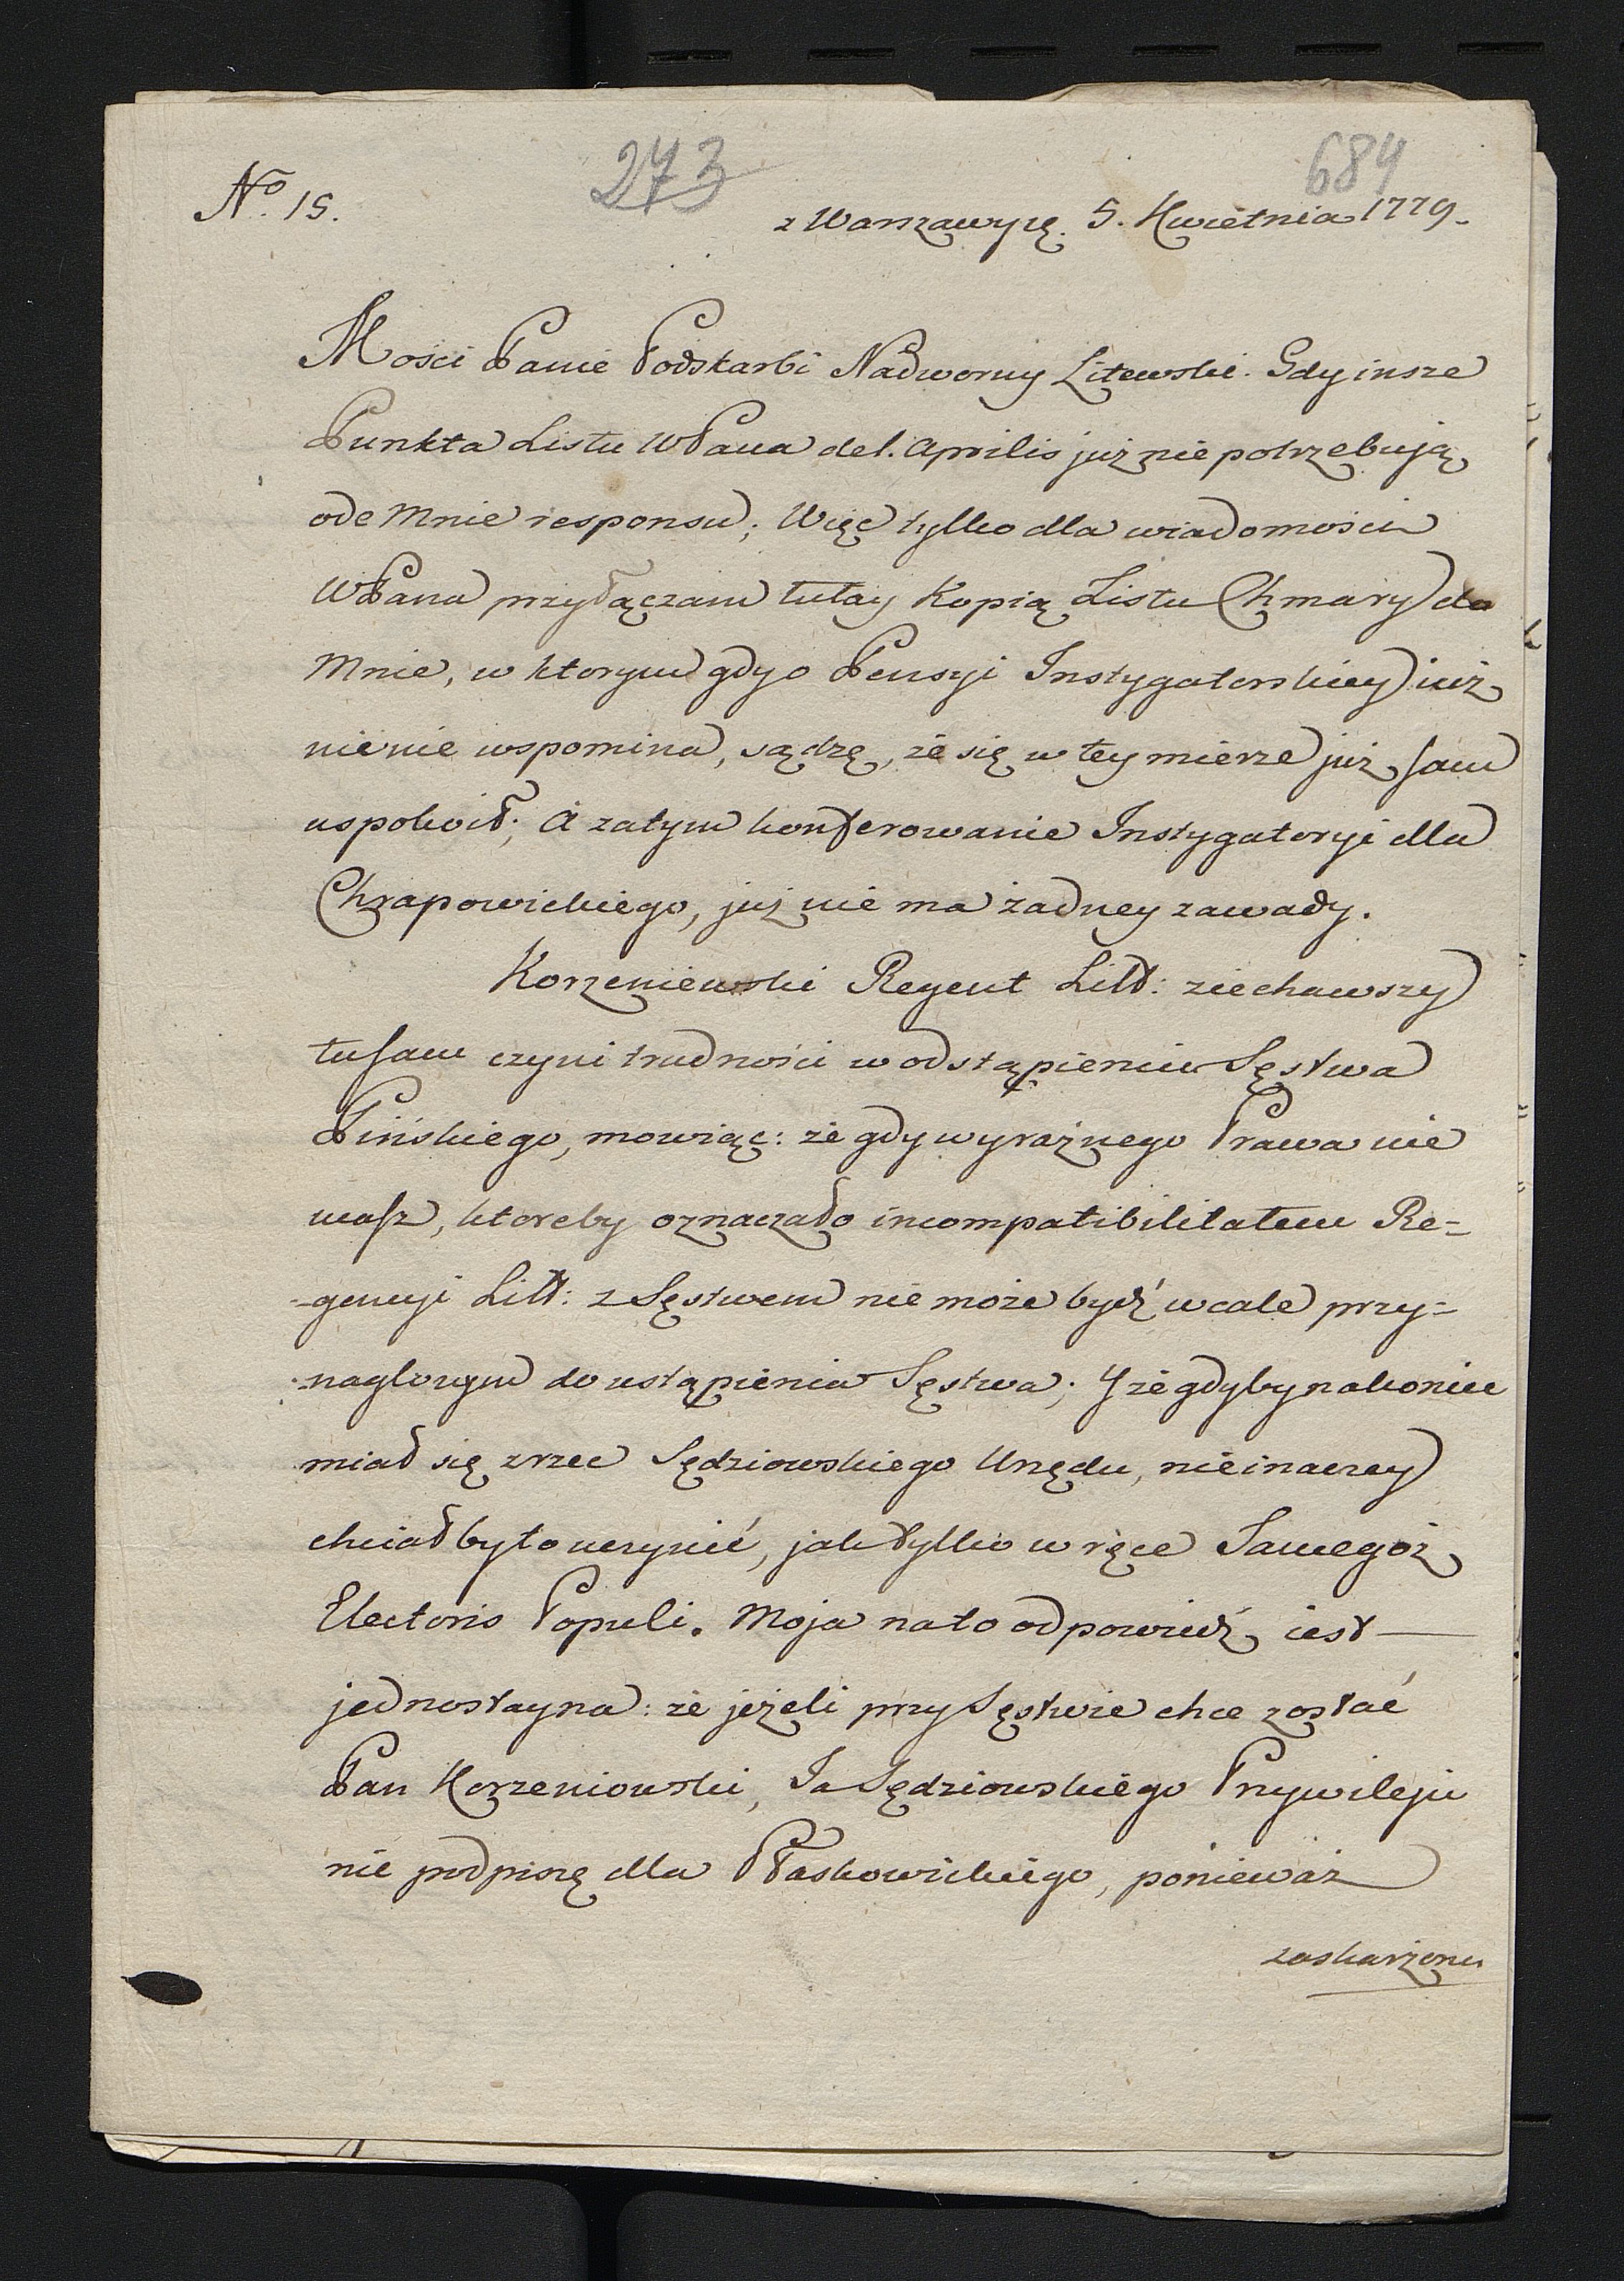 273
684
No. 15.
z Warszawy ię. 5. Kwietnia 1779.
Mości Panie Podskarbi Nadworny Litewski. Gdy insze
Punkta Listu WPana de 1. Aprilis już nie potrzebują
ode Mnie responsu; Więc tylko dla wiadomości
WPana przyłączam tutay Kopią Listu Chmary do
Mnie, w ktorym gdy o Pensyi Instygatorskiey iuż
nic nie wspomina, sądzę, że się w tey mierze już sam
uspokoił; A zatym konferowanie Instygatoryi dla
Chrapowickiego, już nie ma żadney zawady.
Korzeniewski Regent Litt: ziechawszy
tu sam czyni trudności w odstąpieniu Sęstwa
Pińskiego, mowiąc: że gdy wyraźnego Prawa nie
masz, ktoreby oznaczało incompatibilitatem Re=
=gencyi Litt: z Sęstwem nie może bydź wcale przy=
=naglonym do ustąpienia Sęstwa; Y że gdyby nakoniec
miał się zrzec Sędziowskiego Urzędu, nieinaczey
chciałby to uczynić, jak tylko w ręce Samegoż
Electoris Populi. Moja na to odpowiedź iest
jednostayna: że jeżeli przy Sęstwie chce zostać
Pan Korzeniowski, Ja Sędziowskiego Przywileju
nie podpiszę dla Płaskowickiego, ponieważ
zaskarżonu